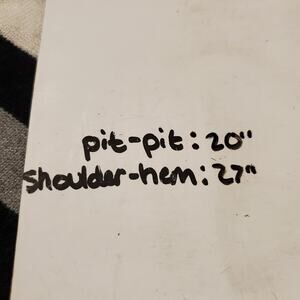 pit-pit: 20"
shoulder-hem: 27"